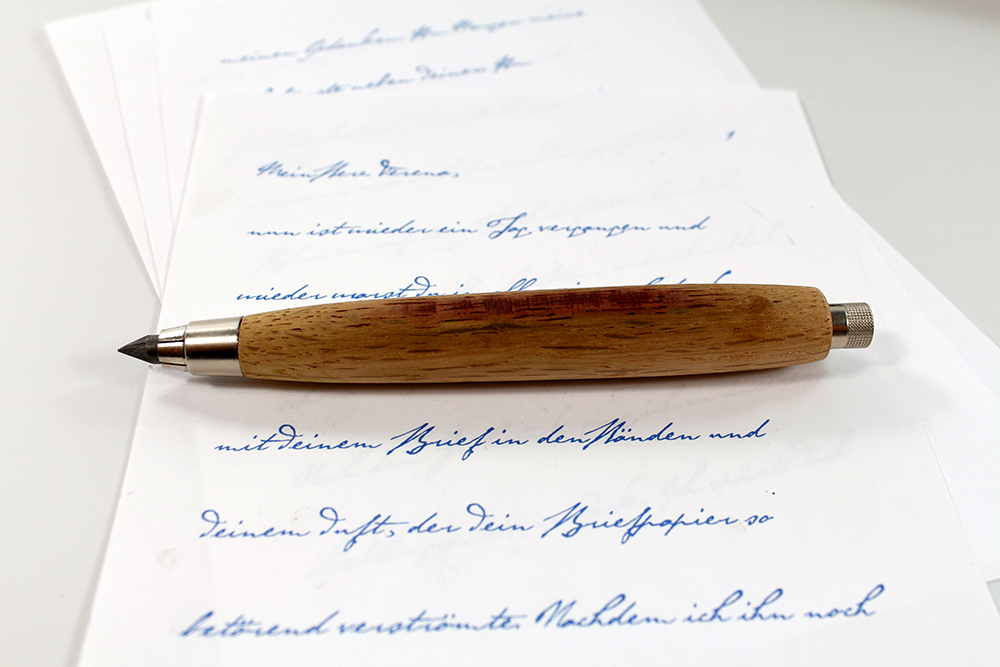 meinen Gedanken
neben deinen
1
Meine Verena,
nun ist wieder ein Tag vergangen und
wieder warst du in
mit deinem Brief in den Händen und
deinem Duft, der dein Briefpapier so
betörend verströmte. Nachdem ich ihn noch